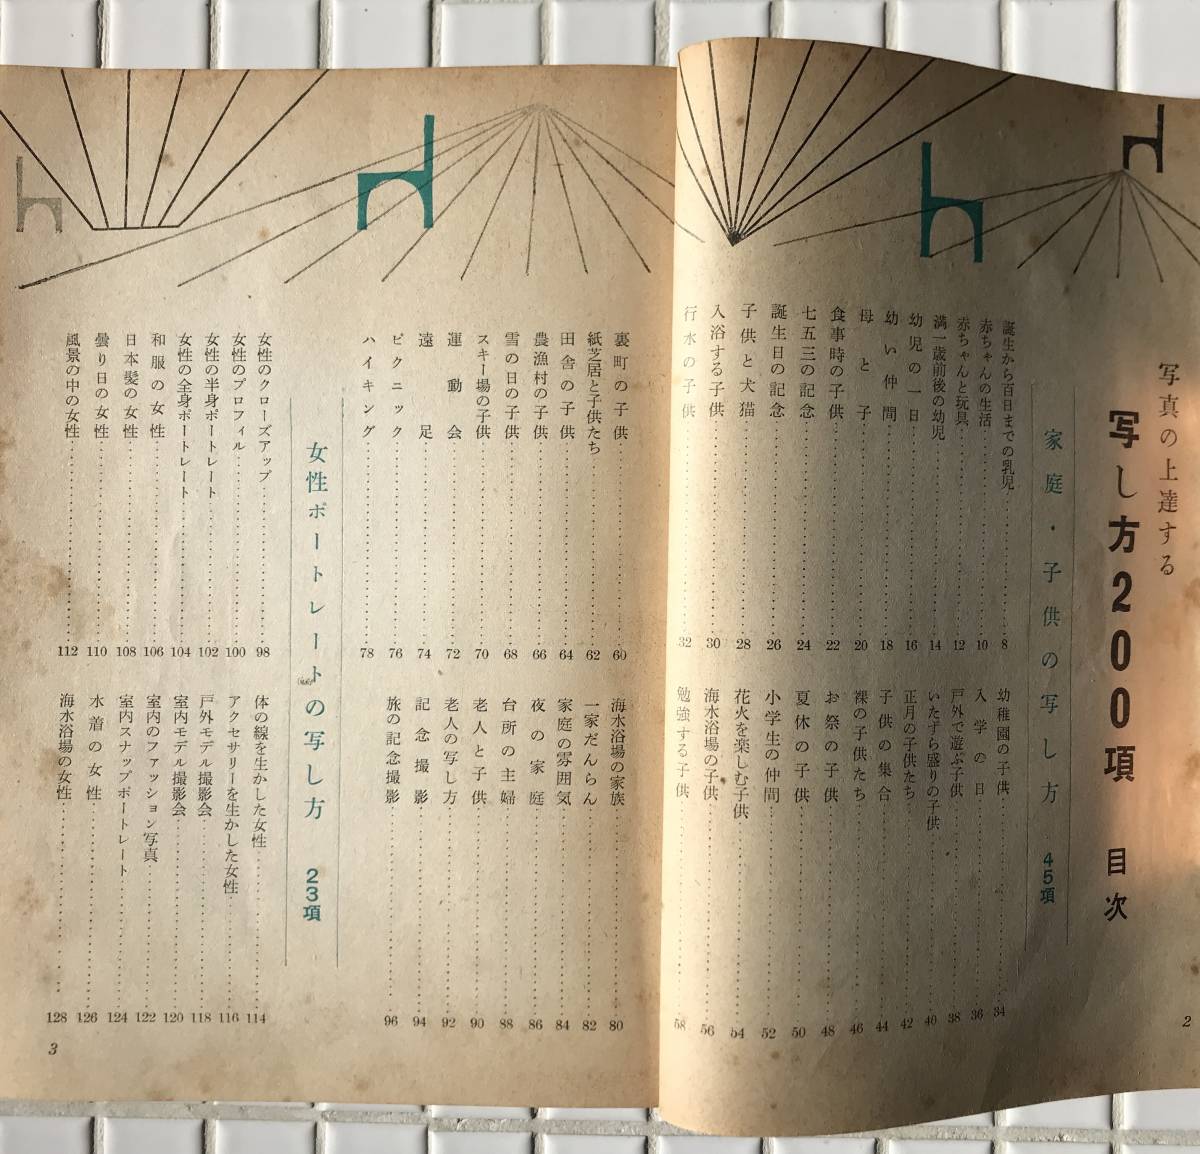 写真の上達する
写し方200項 目次
家庭・子供の写し方 45項
誕生から百日までの乳児 8
赤ちゃんの生活 10
赤ちゃんと玩具 12
満一歳前後の幼児 14
幼児の一日 16
幼い仲間 18
母と子 20
食事時の子供 22
七五三の記念 24
誕生日の記念 26
子供と犬猫 28
入浴する子供 30
行水の子供 32
幼稚園の子供 34
入学の日 36
戸外で遊ぶ子供 38
いたずら盛りの子供 40
正月の子供たち 42
子供の集合 44
裸の子供たち 46
お祭の子供 48
夏休の子供 50
小学生の仲間 52
花火を楽しむ子供 54
海水浴場の子供 56
勉強する子供 58
2
裏町の子供 60
紙芝居と子供たち 62
田舎の子供 64
農漁村の子供 66
雪の日の子供 68
スキー場の子供 70
運動会 72
遠足 74
ピクニック 76
ハイキング 78
海水浴場の家族 80
一家だんらん 82
家庭の雰囲気 84
夜の家庭 86
台所の主婦 88
老人と子供 90
老人の写し方 92
記念撮影 94
旅の記念撮影 96
女性ポートレートの写し方 23項
女性のクローズアップ 98
女性のプロフィル 100
女性の半身ポートレート 102
女性の全身ポートレート 104
和服の女性 106
日本髪の女性 108
曇り日の女性 110
風景の中の女性 112
体の線を生かした女性 114
アクセサリーを生かした女性 116
戸外モデル撮影会 118
室内モデル撮影会 120
室内のファッション写真 122
室内スナップポートレート 124
水着の女性 126
海水浴場の女性 128
3